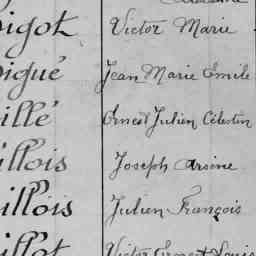 igot Victor Marie
igué Jean Marie Emile
illé Ernest Julien Célestin
illois Joseph Arsène
illois Julien François
illot Victor Ernest Louis